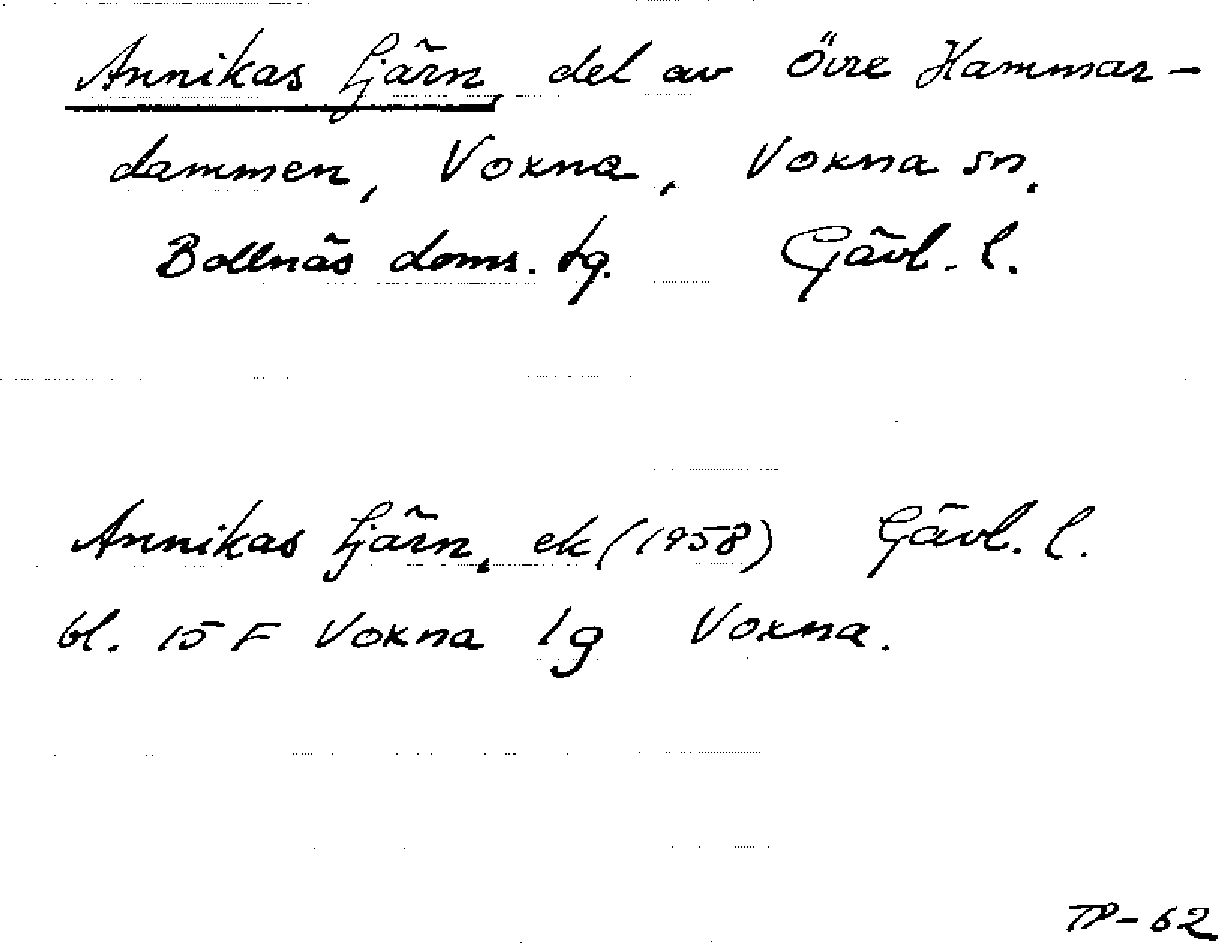 Annikas tjärn, del av Övre Hammar-
dammen, Voxna, Voxna sn.
Bollnäs doms. tg. Gävl. l.
Annikas tjärn, ek (1958) Gävl. l.
bl. 15 F Voxna 1g Voxna.
TP-62